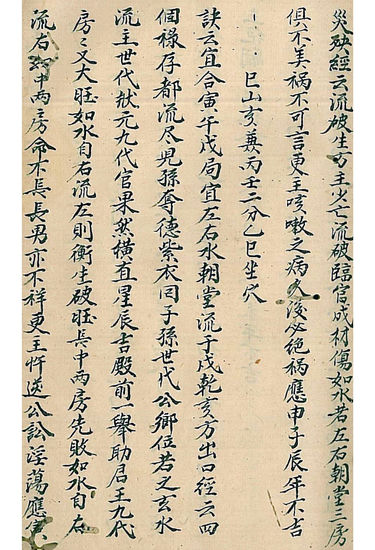 災殃經云流破生方主少亡流破臨官成材傷如水若左右朝堂三房
俱不美禍不可言更主咳嗽之病久後必絕禍應申子辰年不吉
一巳山亥兼丙壬二分乙巳坐穴
訣云宜合寅午戌局宜左右水朝堂流于戌乾亥方出口經云四
個祿存都流尽兒孫奪德紫衣囘子孫世代公鄉位若之玄水
流主世代狀元九代官果英橫直星辰吉殿前一舉助居王九代
房〻又大旺如水自右流左則衝生破旺長中两房先敗如水自左
流右 中两房命不長長男亦不祥更主忤逆公訟淫蕩應寅